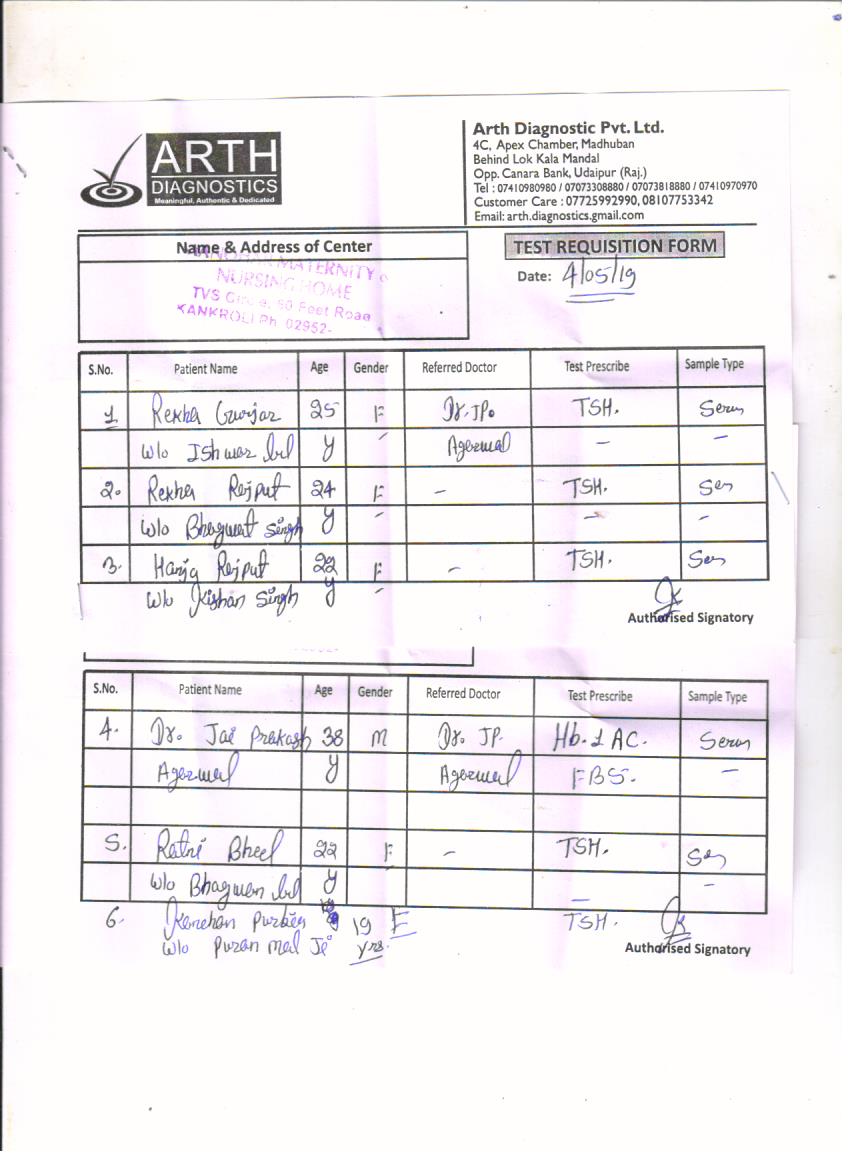 ARTH
DIAGNOSTICS
Meaningful, Authentic & Dedicated
Arth Diagnostic Pvt. Ltd.
4C, Apex Chamber, Madhuban
Behind Lok Kala Mandal
Opp. Canara Bank, Udaipur (Raj.)
Tel : 07410980980 / 07073308880 / 07073818880 / 07410970970
Customer Care : 07725992990, 08107753342
Email: arth.diagnostics.gmail.com
Name & Address of Center
MATERNITY
NURSING HOME
TVS Circle, 50 Feet Road
KANKROLI Ph. 02952-
TEST REQUISITION FORM
Date: 4/05/19
S.No. Patient Name Age Gender Referred Doctor Test Prescribe Sample Type
1 Rekha Gurjar 25 F Dr. JP. TSH. Serum
w/o Ishwar lal y - Agarwal - -
2. Rekha Rajput 24 F - TSH. Ser
w/o Bhagwat Singh y - - -
3. Rajput 22 F - TSH. Ser
w/o Kishan Singh y -
Authorised Signatory
S.No. Patient Name Age Gender Referred Doctor Test Prescribe Sample Type
4. Dr. Jai Prakash 38 M Dr. JP. Hb.1 AC. Serum
Agarwal y Agarwal FBS. -
5. Ratni Bheel 22 F - TSH. Ser
w/o Bhagwan lal y - -
6. Kanchan Purbia 19 F TSH.
w/o Puran mal Ji yrs.
Authorised Signatory